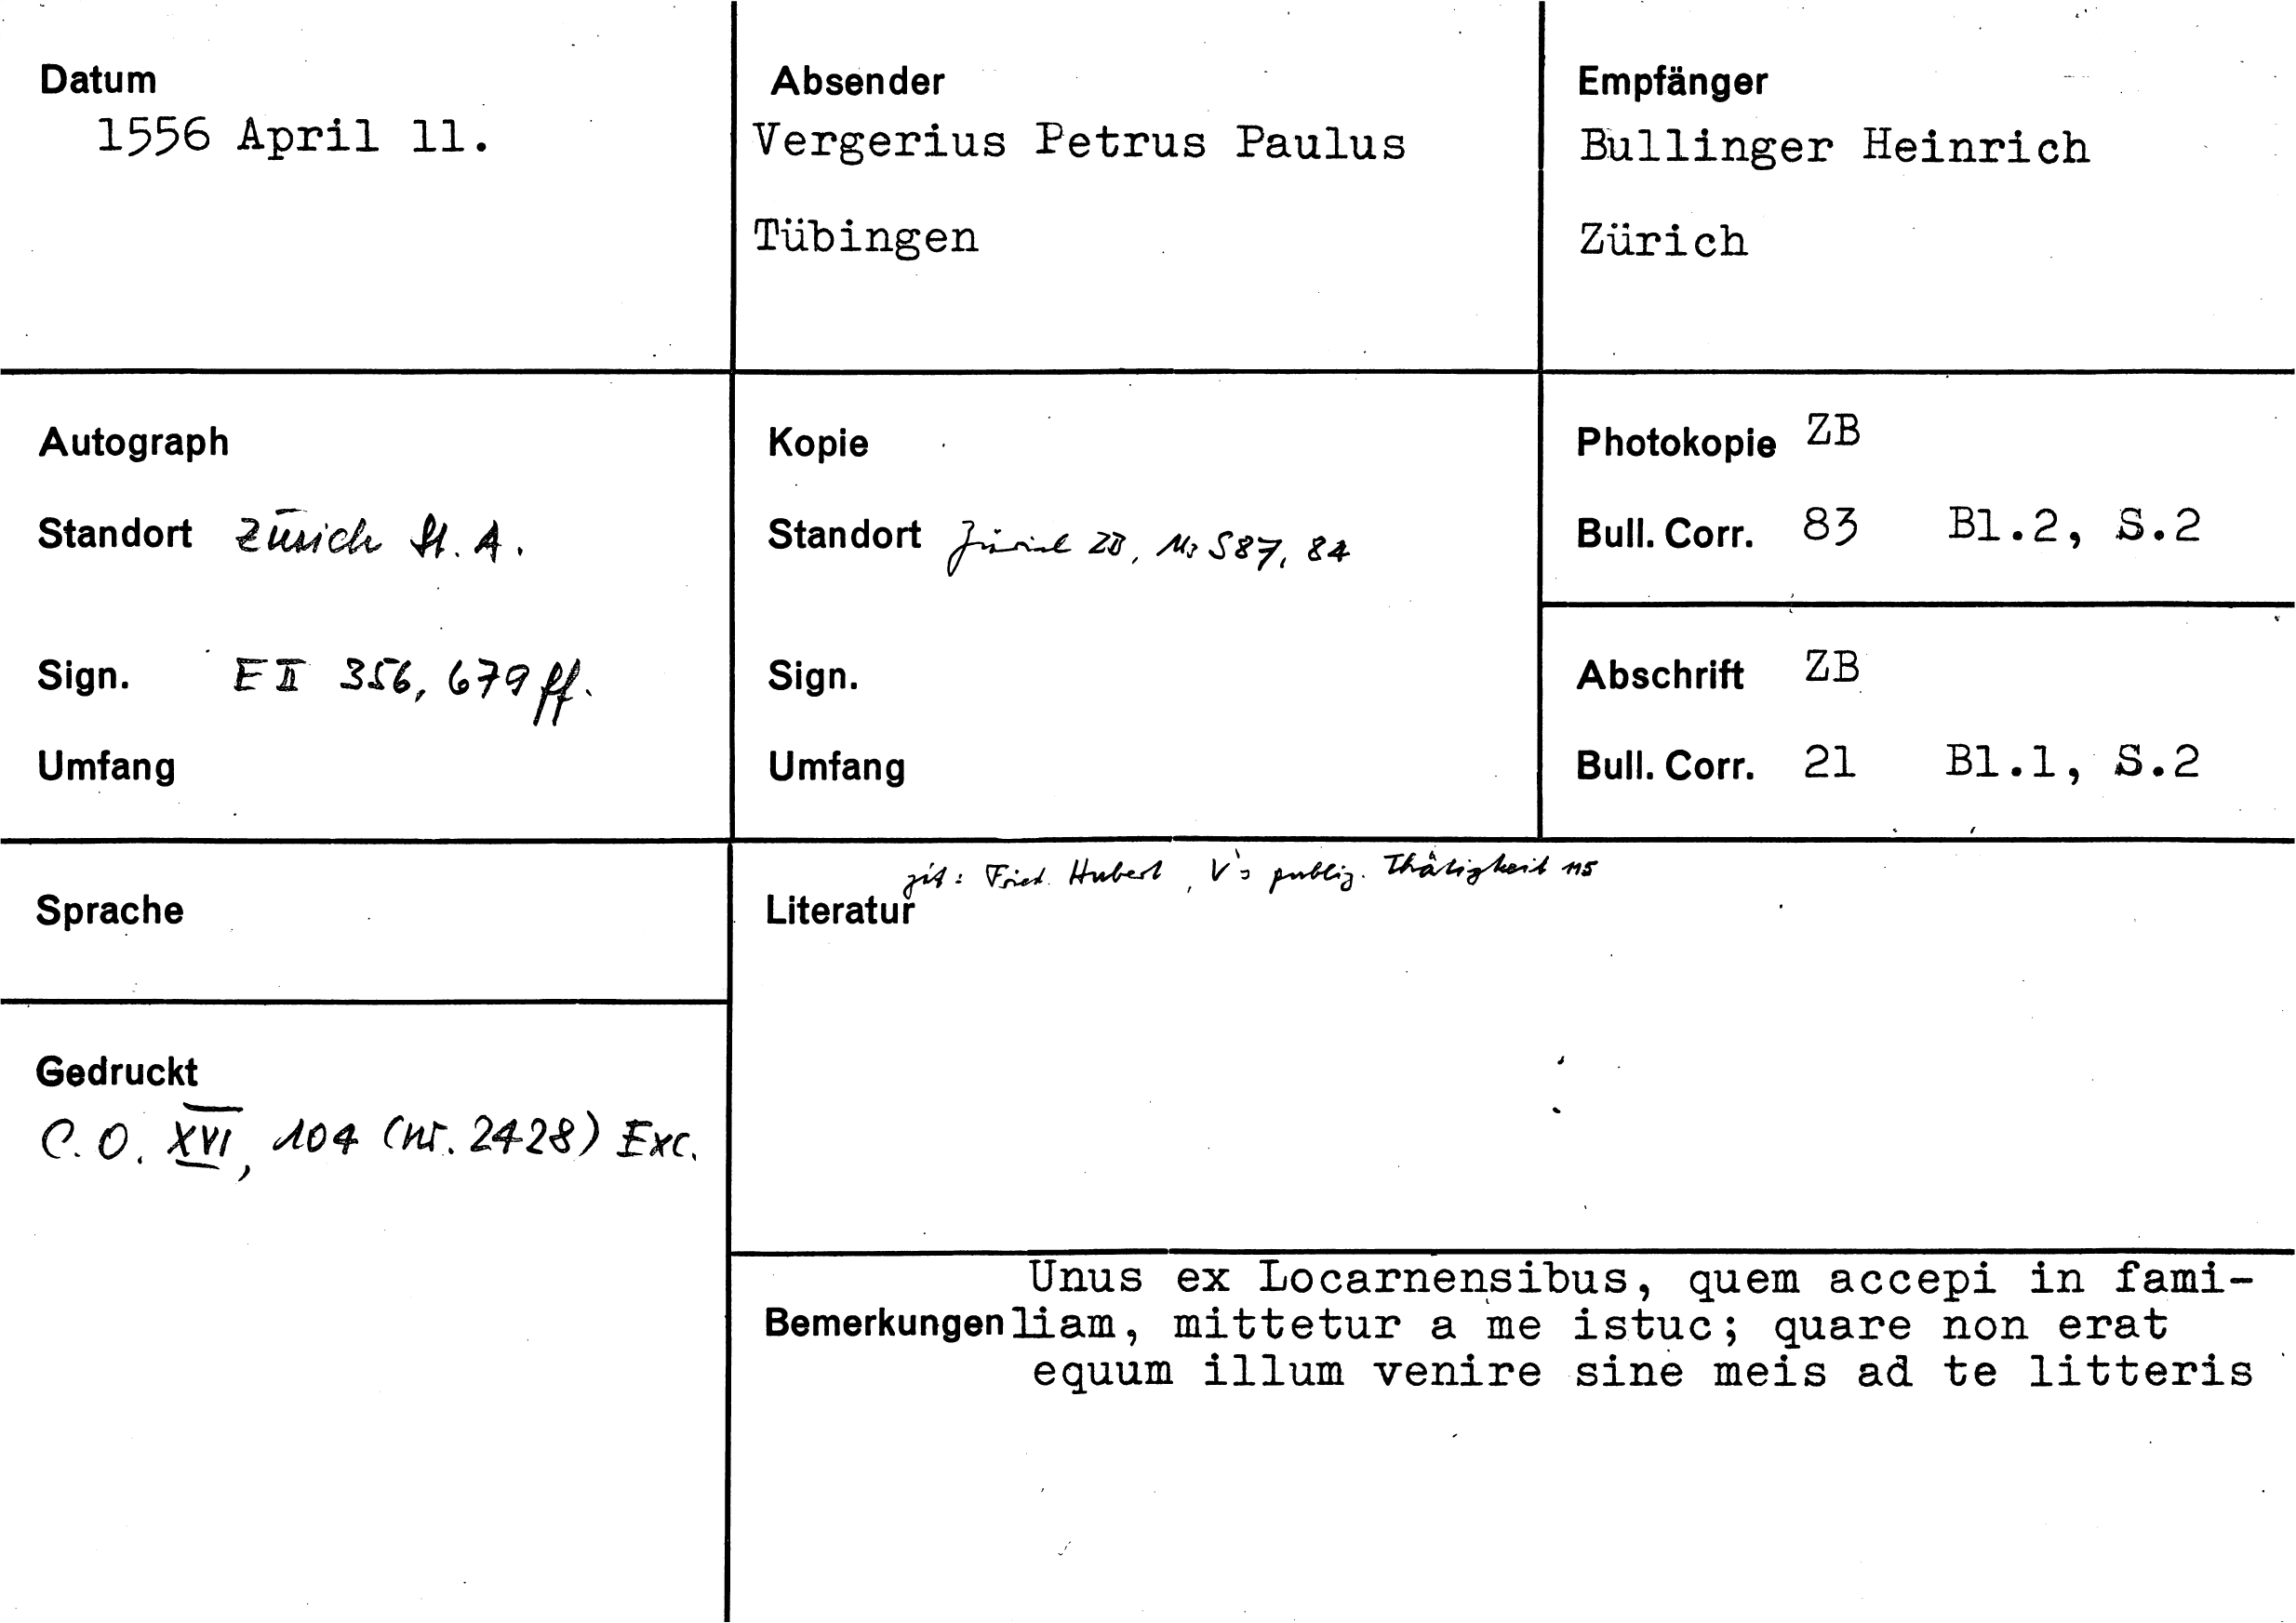 Datum
1556 April 11.
Absender
Vergerius Petrus Paulus
Tübingen
Empfänger
Bullinger Heinrich
Zürich
Autograph
Standort Zürich St. A.
Sign. E II 356, 679 ff.
Umfang
Kopie
Standort Zürich ZB, Ms S 87, 84
Sign.
Umfang
Photokopie ZB
Bull. Corr. 83 Bl.2, S.2
Abschrift ZB
Bull. Corr. 21 Bl.1, S.2
Sprache
Gedruckt
C. O. XVI, 104 (nr. 2428) Exc.
zit: Fried. Hubert, V's publiz. Thätigkeit 115
Literatur
Unus ex Locarnensibus, quem accepi in fami-
Bemerkungen liam, mittetur a me istuc; quare non erat
equum illum venire sine meis ad te litteris